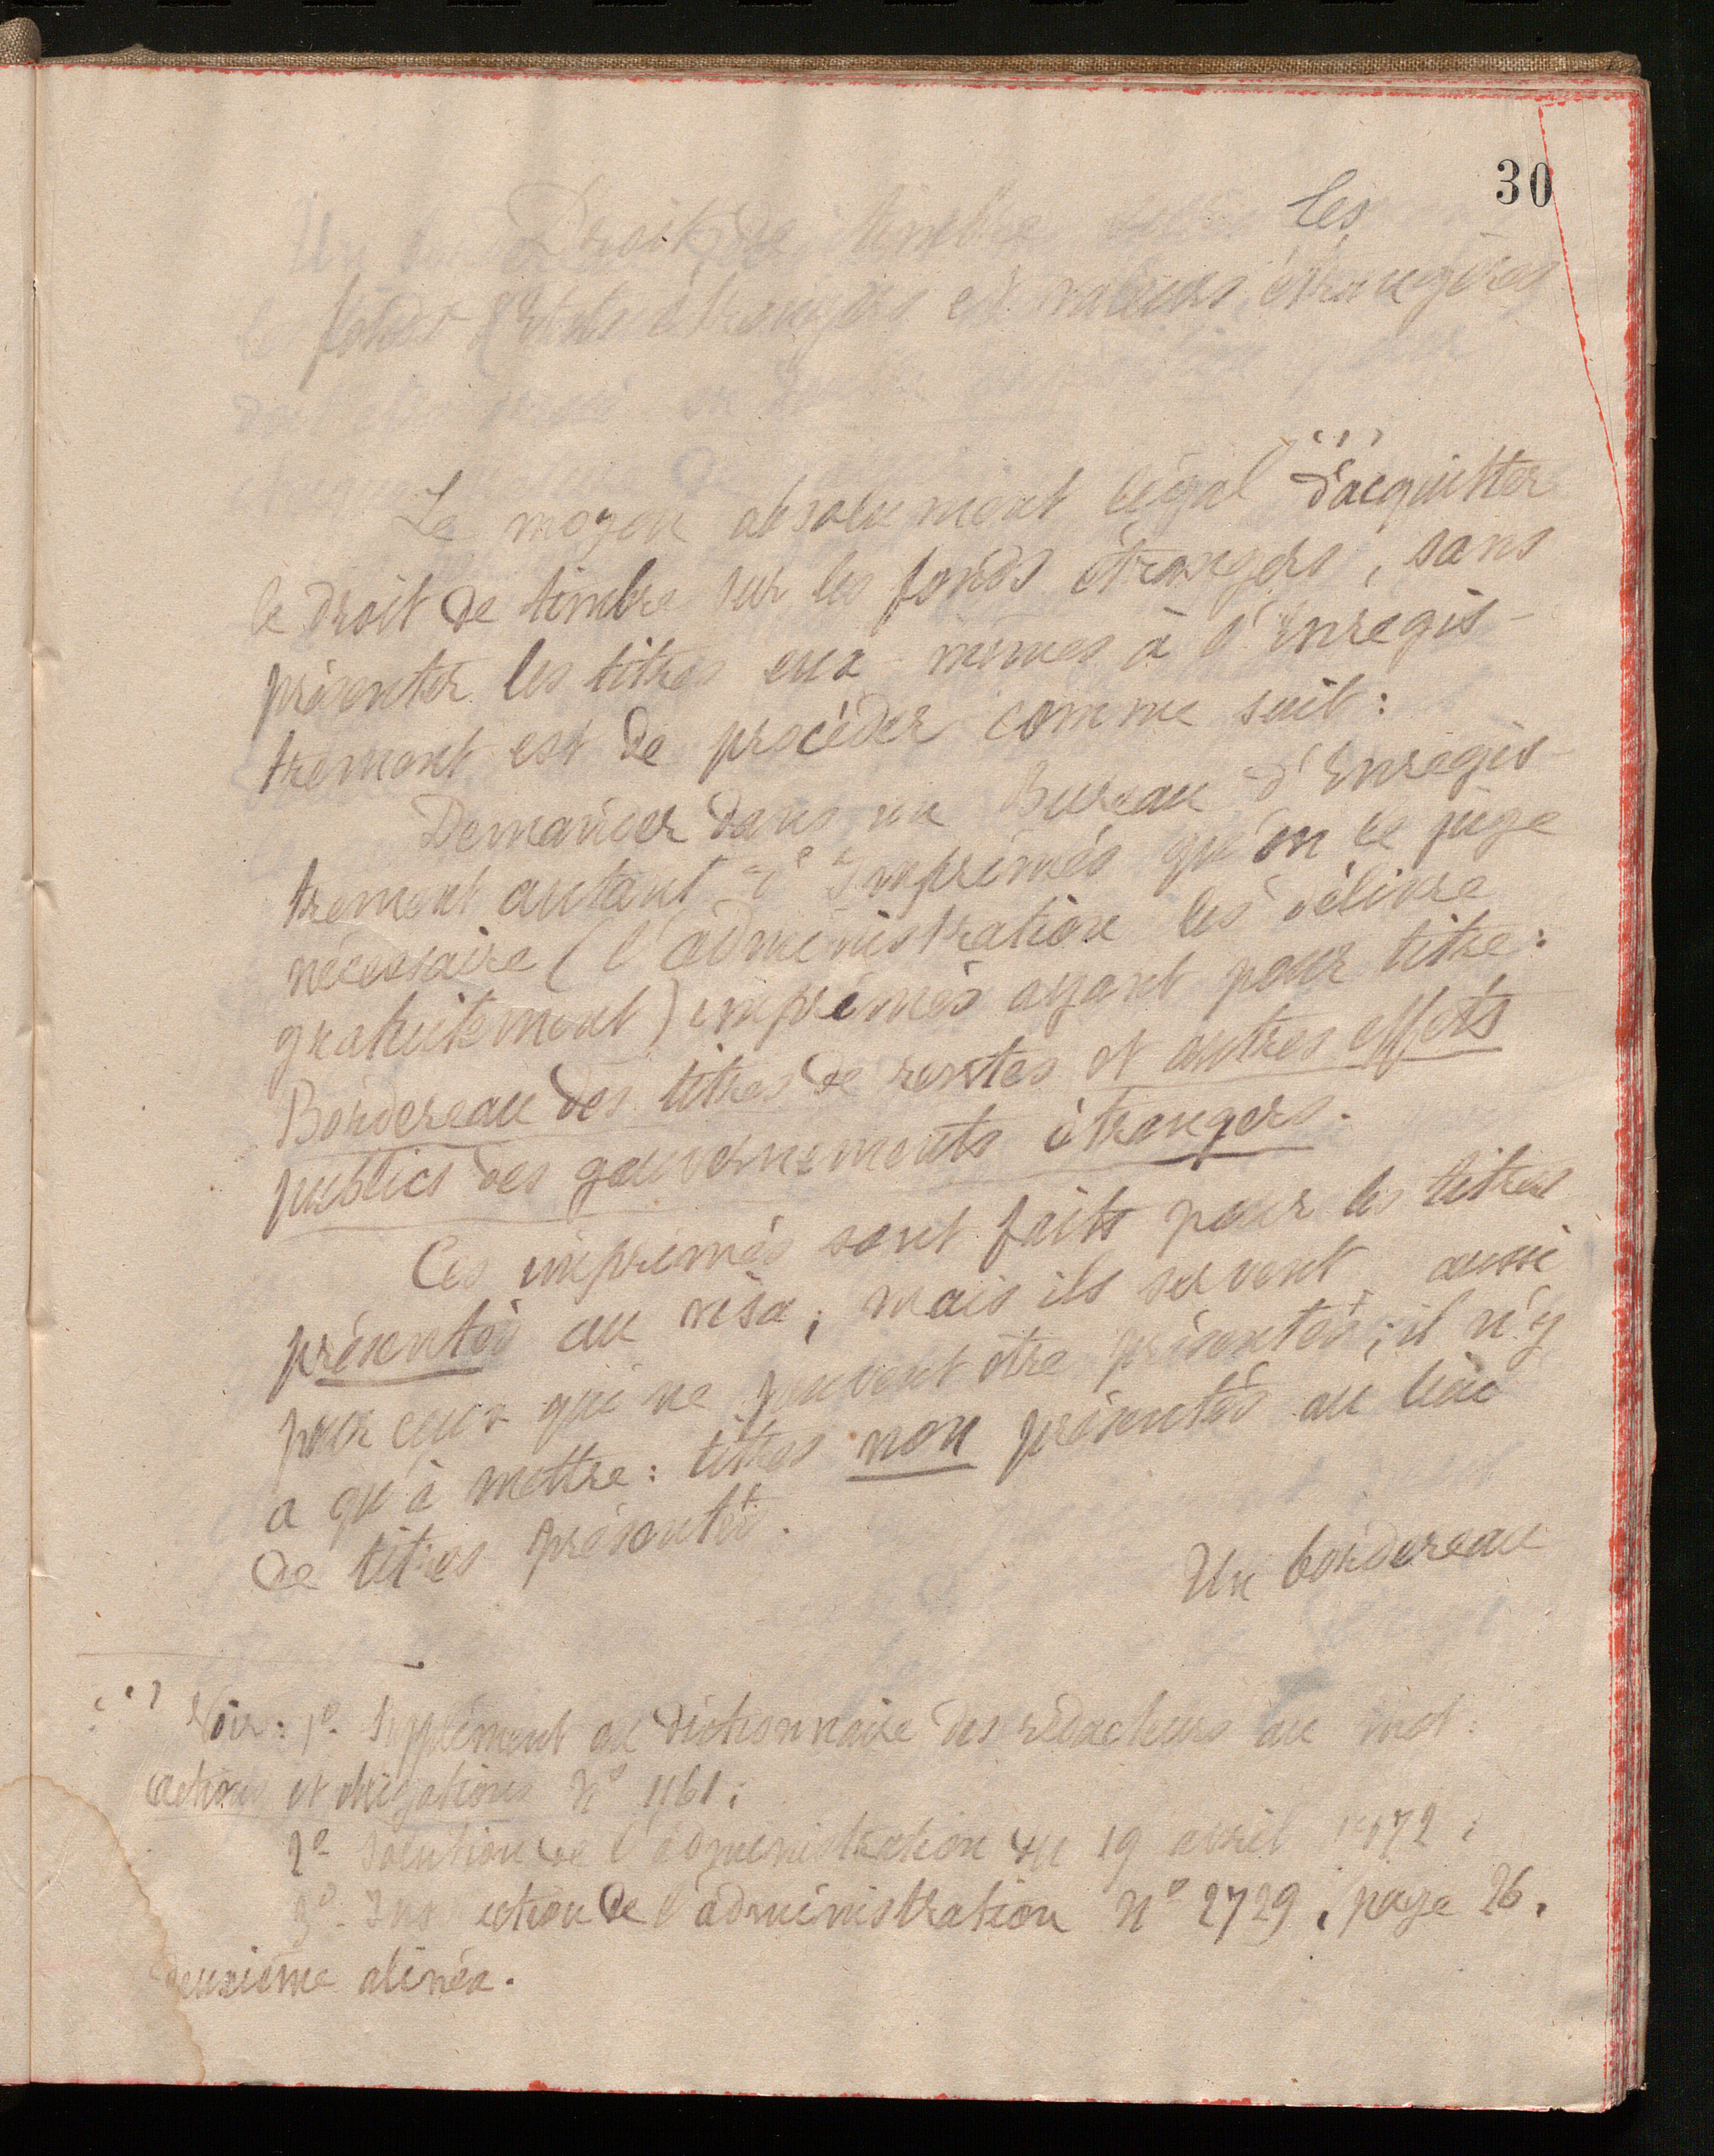 30
Droit de timbre sur les
fonds d'Etats étrangers et valeurs étrangères
(1)
Le moyen absolument légal d'acquitter
le droit de timbre sur les fonds étrangers, sans
présenter les titres eux mêmes à l'Enregis-
trement est de procéder comme suit:
Demander dans un Bureau d'Enregis-
trement autant d'Imprimés qu'on le juge
nécessaire (l'administration les délivre
gratuitement) imprimés ayant pour titre:
Bordereau des titres de rentes et autres effets
publics des gouvernements étrangers.
Ces imprimés sont faits pour les titres
présentés au visa; mais ils servent aussi
pour ceux qui ne peuvent être présentés; il n'y
a qu'à mettre: titres non présentés au lieu
de titres présentés.
Un bordereau
(1) Voir: 1º- Supplément au dictionnaire des rédacteurs au mot:
actions et obligations Nº 1161;
2º- Solution de l'administration du 19 avril 1872;
3º- Ins ction de l'administration Nº 2729, page 26,
deuxième alinéa.